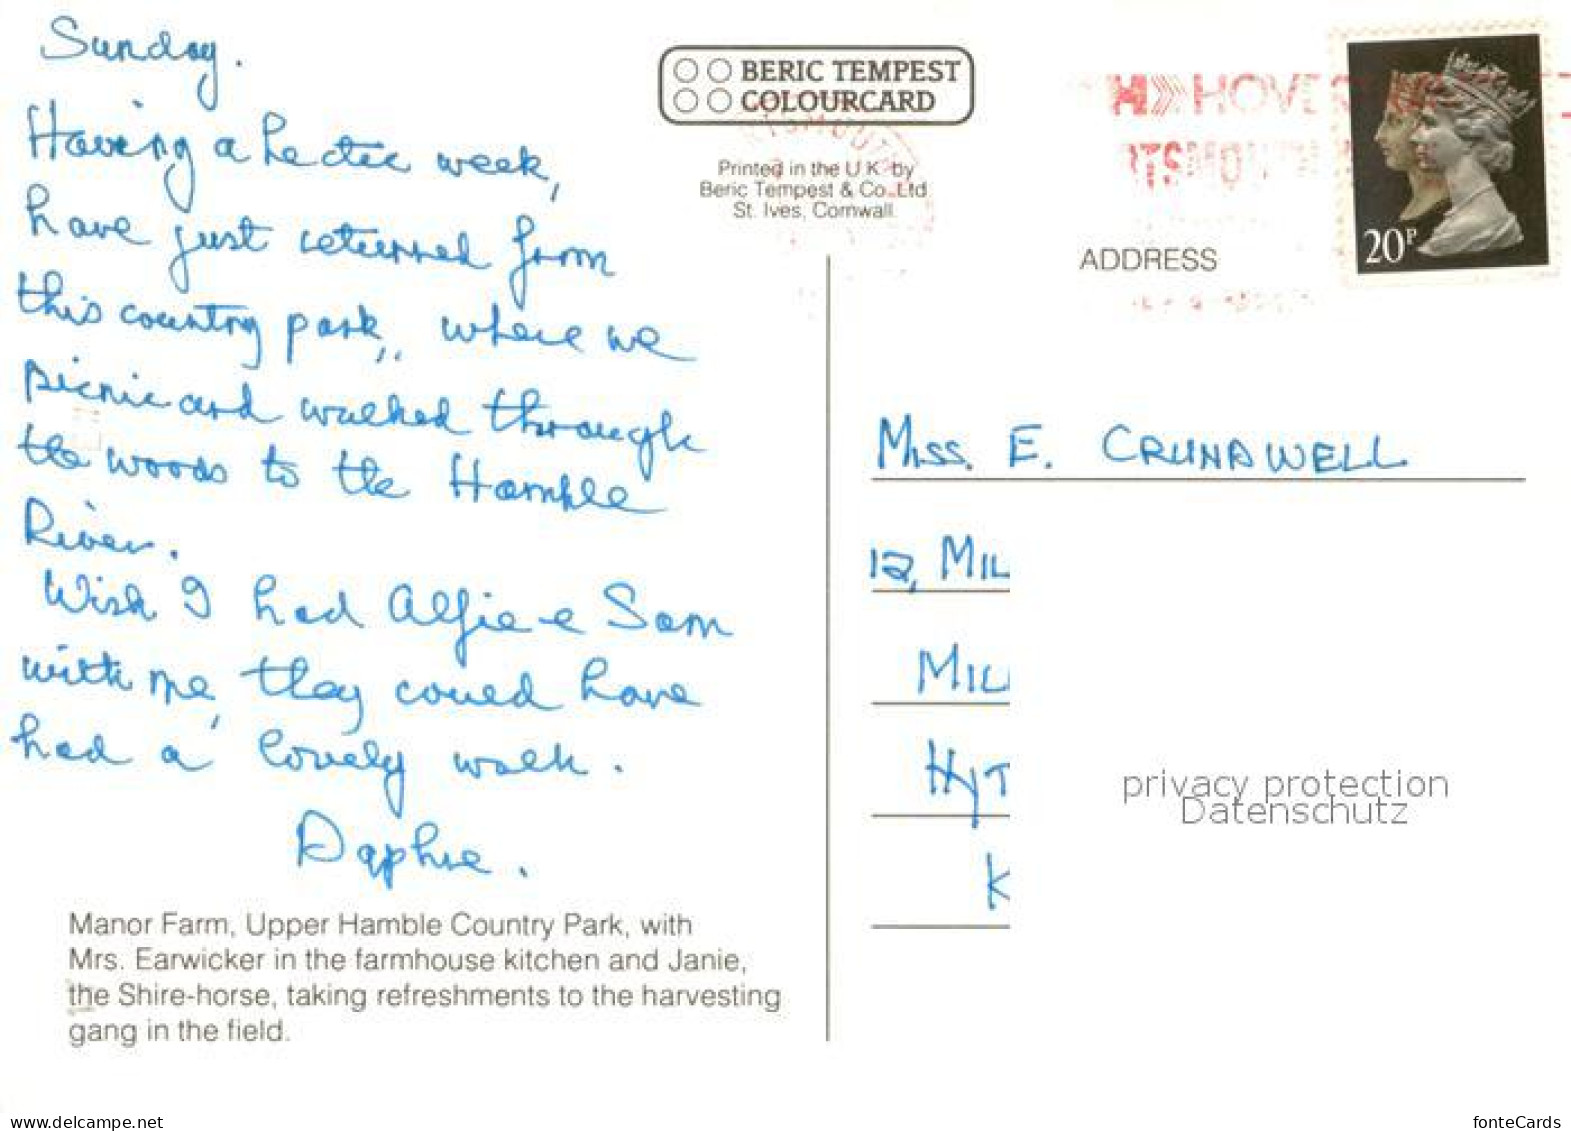 Sunday.
Having a hectic week,
have just returned from
this country park, where we
picnic and walked through
the woods to the Hamble
River.
Wish I had Alfie e Sam
with me, they could have
had a lovely walk.
Daphne.
Manor Farm, Upper Hamble Country Park, with
Mrs. Earwicker in the farmhouse kitchen and Janie,
the Shire-horse, taking refreshments to the harvesting
gang in the field.
BERIC TEMPEST
COLOURCARD
Printed in the U.K. by
Beric Tempest & Co. Ltd
St. Ives, Cornwall.
HOVE
RTSMOUT
20P
ADDRESS
MISS. E. CRUNDWELL
12, MIL
MIL
HYT
K
privacy protection
Datenschutz
www.delcampe.net
fonteCards